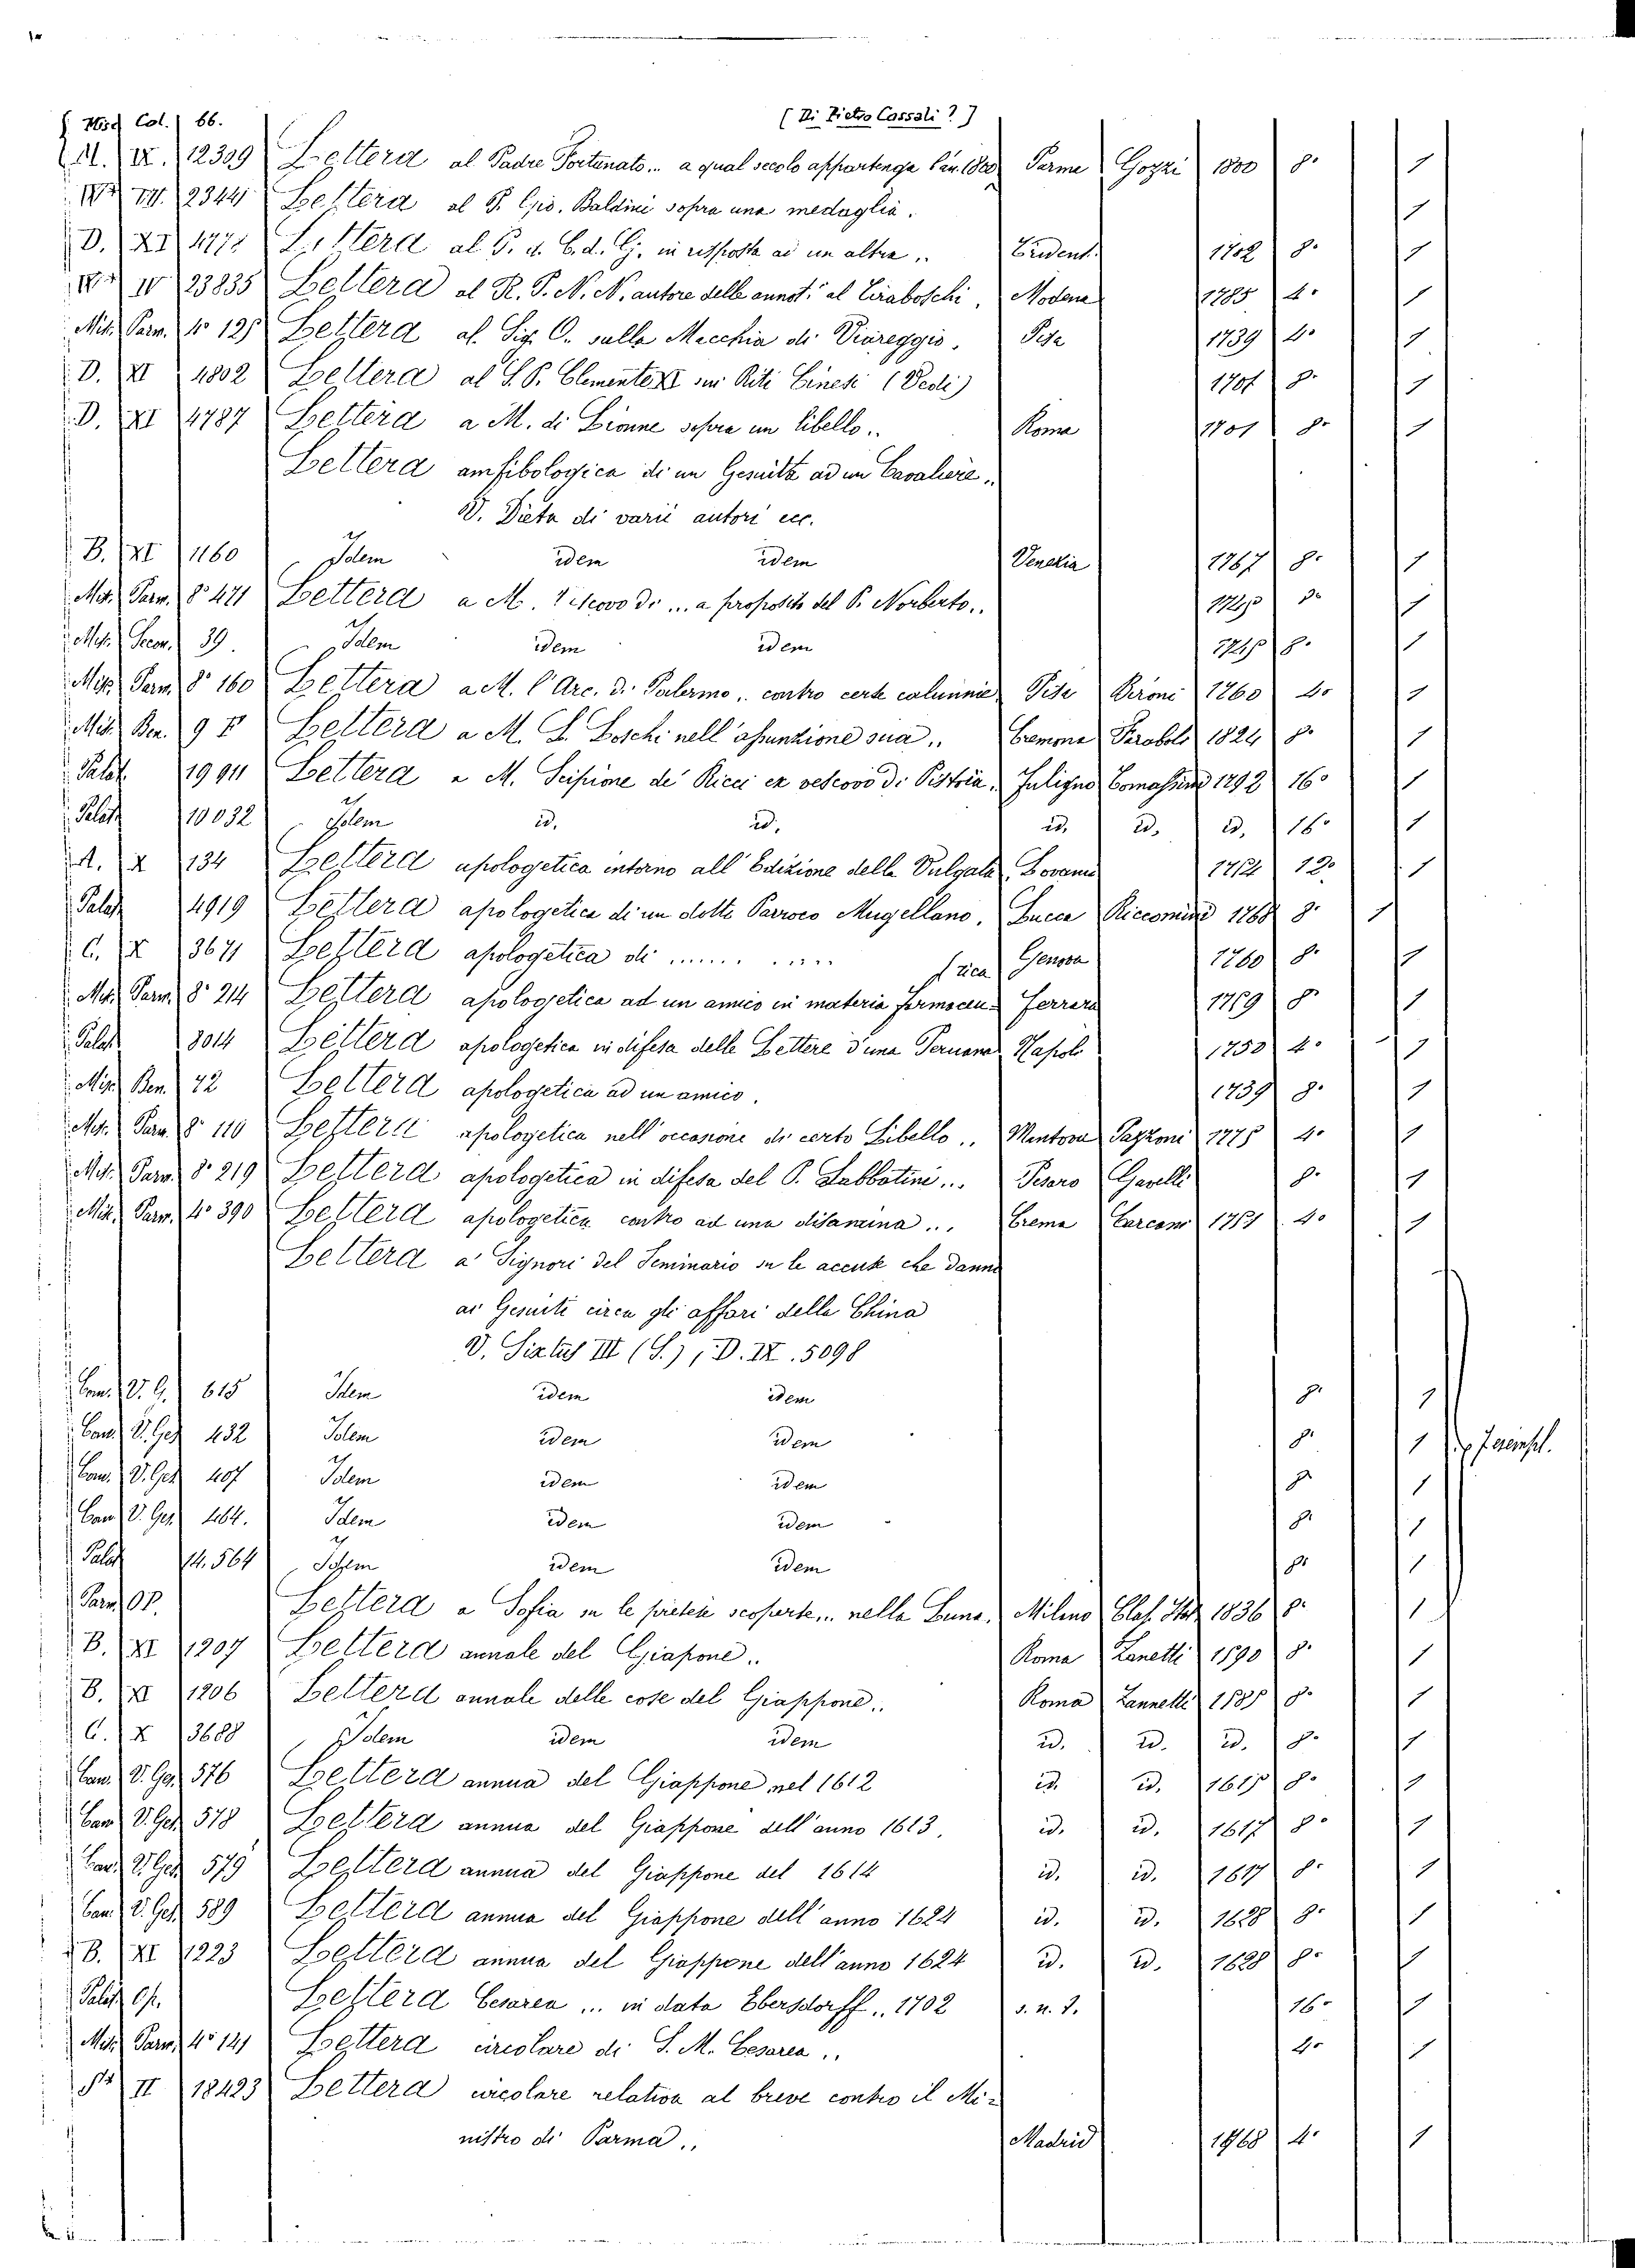 Misc Col. 66. [Di Pietro Cassali?]
M. IX. 12309 Lettera al Padre Fortunato... a qual secolo appartenga l'an. 1800 Parma Gozzi 1800 8º 1
2344 Lettera al P. Gio. Baldini sopra una medaglia. 1
D. XI 4771 Lettera al P. d. C. d. G. in risposta ad un altra.. Trident. 1702 8º 1
IV 23835 Lettera al R. P. N. N. autore delle annot. al Tiraboschi. Modena 1785 4º 1
Misc. Parm. 4º 125 Lettera al Sig. O. sulla Macchia di Viareggio. Pisa 1739 4º 1
D. XI 4802 Lettera al S. P. Clemente XI sui Riti Cinesi (Vedi) 1701 8º 1
D. XI 4787 Lettera a M. di Lionne sopra un libello.. Roma 1701 8º 1
Lettera amfibologica di un Gesuita ad un Cavaliere..
V. Dieta di varii autori ecc.
B. XI 1160 Idem idem idem Venezia 1767 8º 1
Misc. Parm. 8º 471 Lettera a M. Vescovo di ... a proposito del P. Norberto.. 1745 8º 1
Misc. Secon. 39. Idem idem idem 1745 8º 1
Misc. Parm. 8º 160 Lettera a M. l'Arc. di Palermo.. contro certe calunnie Pisa Pironi 1760 4º 1
Misc. Ben. 9 Lettera a M. L. Loschi nell'assunzione sua.. Cremona Feraboli 1824 8º 1
Palat. 19911 Lettera a M. Scipione de' Ricci ex vescovo di Pistoia. Fuligno Tomassini 1792 16º 1
Palat. 10032 Idem id. id. id. id. id. 16º 1
A. X 134 Lettera apologetica intorno all'Edizione della Vulgata. Lovanii 12º 1
Palat. 4919 Lettera apologetica di un dotto Parroco Mugellano. Lucca Riccomini 1768 8º 1
C. X 3671 Lettera apologetica di ........ Genova 1760 8º 1
Misc. Parm. 8º 214 Lettera apologetica ad un amico in materia farmaceu=tica Ferrara 1769 8º 1
Palat. 8014 Lettera apologetica in difesa delle Lettere d'una Peruana Napoli 1750 4º 1
Misc. Ben. 72 Lettera apologetica ad un amico. 1739 8º 1
Misc. Parm. 8º 110 Lettera apologetica nell'occasione di certo Libello.. Mantova Pazzoni 1775 4º 1
Misc. Parm. 8º 219 Lettera apologetica in difesa del P. Sabbatini... Pesaro Gavelli 8º 1
Misc. Parm. 4º 390 Lettera apologetica contro ad una disamina... Crema Carcano 1781 4º 1
Lettera a' Signori del Seminario su le accuse che danno
ai Gesuiti circa gli affari della China
V. Sixtus III (S.), D. IX. 5098
Com. V. G. 615 Idem idem idem 8º 1
Com. V. Ges 432 Idem idem idem 8º 1
Com. V. Ges 407 Idem idem idem 8º 1
Com. V. Ges 464. Idem idem idem 8º 1
Palat. 14.564 Idem idem idem 8º 1
Parm. OP. Lettera a Sofia su le pretese scoperte... nella Luna. Milano Clas. Ital. 1836 8º 1
B. XI 1207 Lettera annale del Giapone.. Roma Zanetti 1590 8º 1
B. XI 1206 Lettera annale delle cose del Giappone.. Roma Zannetti 1585 8º 1
C. X 3688 Idem idem idem id. id. id. 8º 1
Com. V. Ges 576 Lettera annua del Giappone nel 1612 id. id. 1615 8º 1
Com. V. Ges 578 Lettera annua del Giappone dell'anno 1613. id. id. 1617 8º 1
Com. V. Ges 579 Lettera annua del Giappone del 1614 id. id. 1617 8º 1
Com. V. Ges 589 Lettera annua del Giappone dell'anno 1624 id. id. 1628 8º 1
B. XI 1223 Lettera annua del Giappone dell'anno 1624 id. id. 1628 8º 1
Palat. Op. Lettera Cesarea ... in data Ebersdorff.. 1702 s. n. t. 16º 1
Misc. Parm. 4º 141 Lettera circolare di S. M. Cesarea.. 4º 1
II 18423 Lettera circolare relation al breve contro il Mi=
nistro di Parma.. Madrid 1768 4º 1